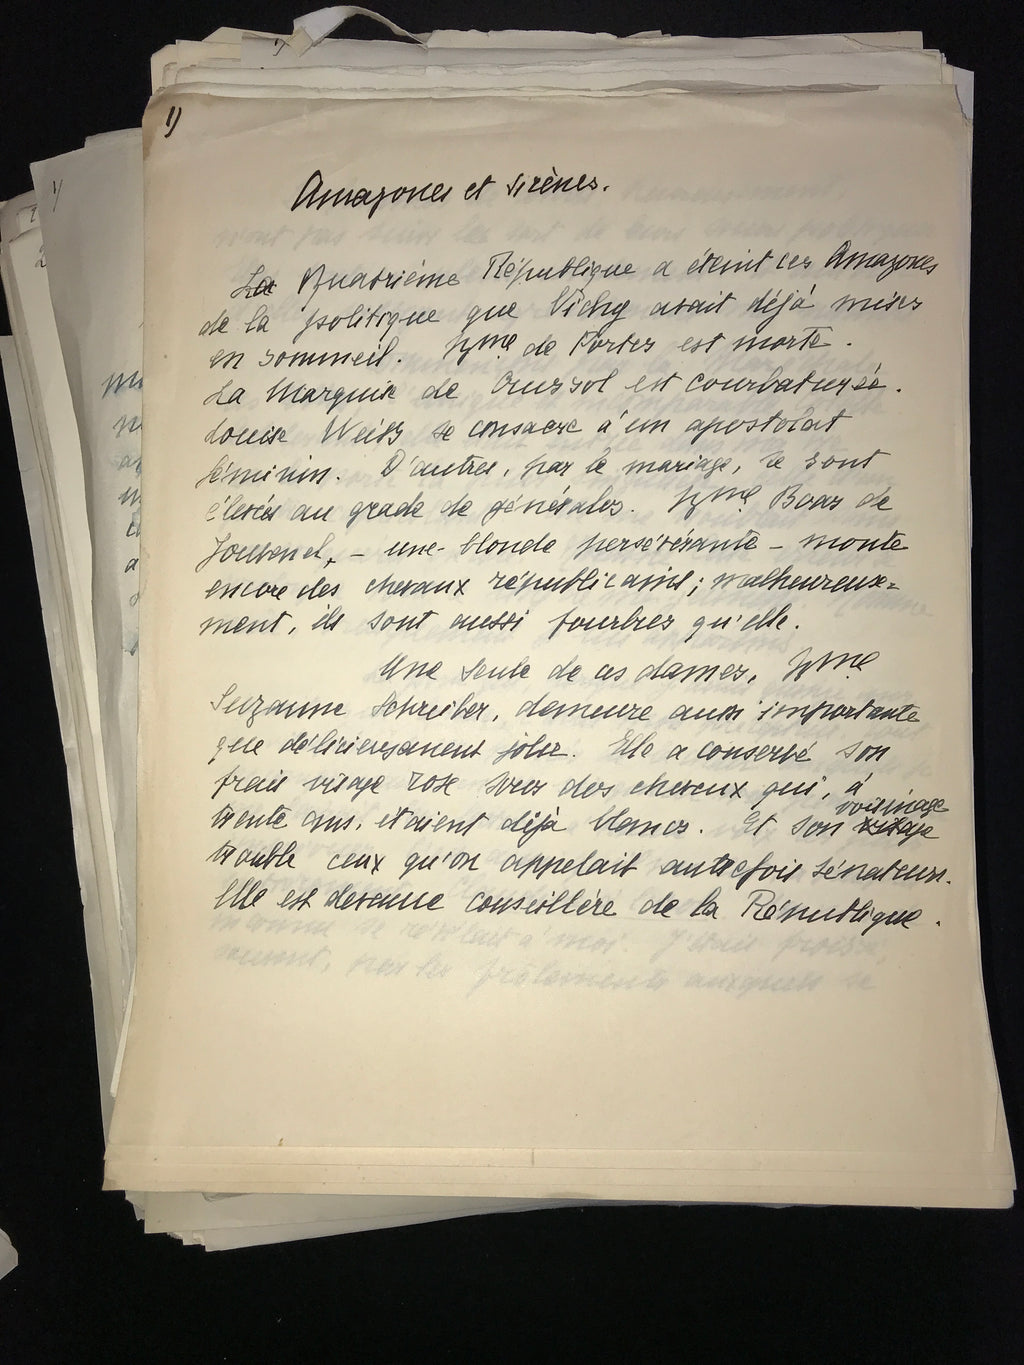 1)
Amazones et sirènes.
La Quatrième République a éteint les Amazones
de la politique que Vichy avait déjà mises
en sommeil. Mme de Portes est morte.
La Marquise de Crussol est courbaturée.
Louise Weiss se consacre à un apostolat
féminin. D'autres, par le mariage, se sont
élevées au grade de générales. Mme Boas de
Jouvenel, - une blonde persévérante - monte
encore des chevaux républicains; malheureuse=
ment, ils sont aussi fourbus qu'elle.
Une seule de ces dames, Mme
Suzanne Schreiber, demeure aussi importante
que délicieusement jolie. Elle a conservé son
frais visage rose sous des cheveux qui, à
trente ans, étaient déjà blancs. Et son visage voisinage
trouble ceux qu'on appelait autrefois sénateurs.
Elle est devenue conseillère de la République.